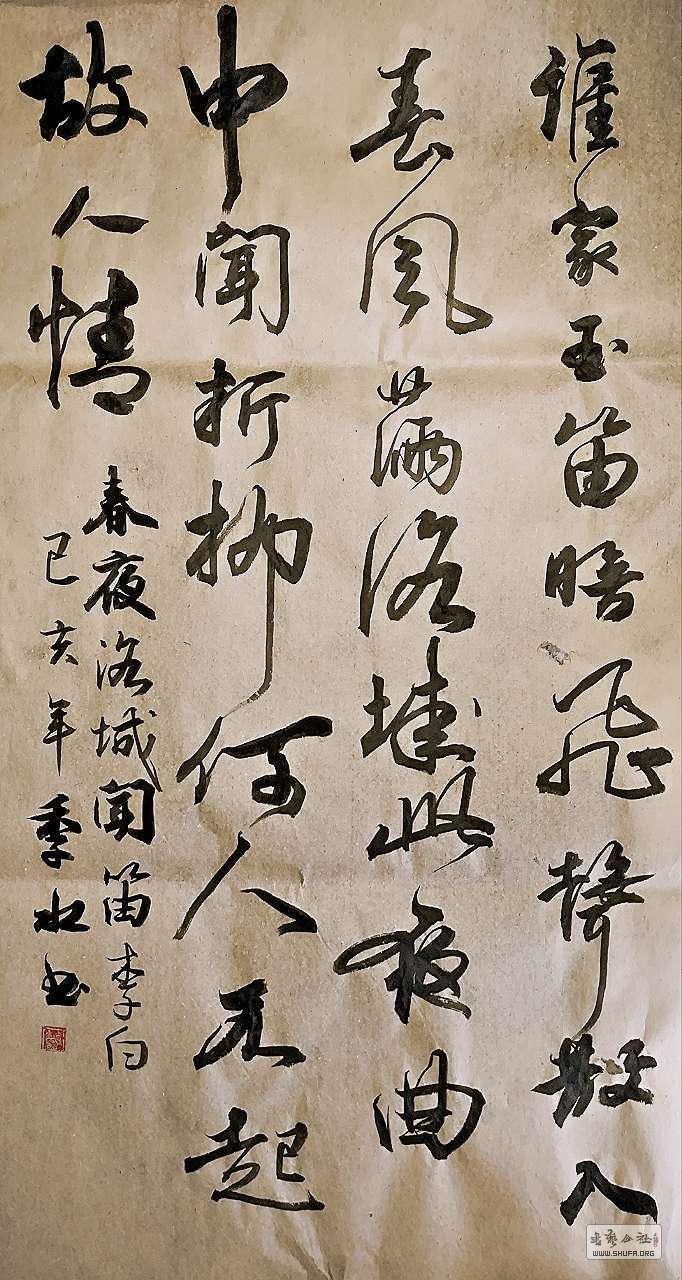 谁家玉笛暗飛聲散入
春风满洛城此夜曲
中闻折柳何人不起
故人情
春夜洛城闻笛李白
己亥年季水书
书艺公社
WWW.SHUFA.ORG